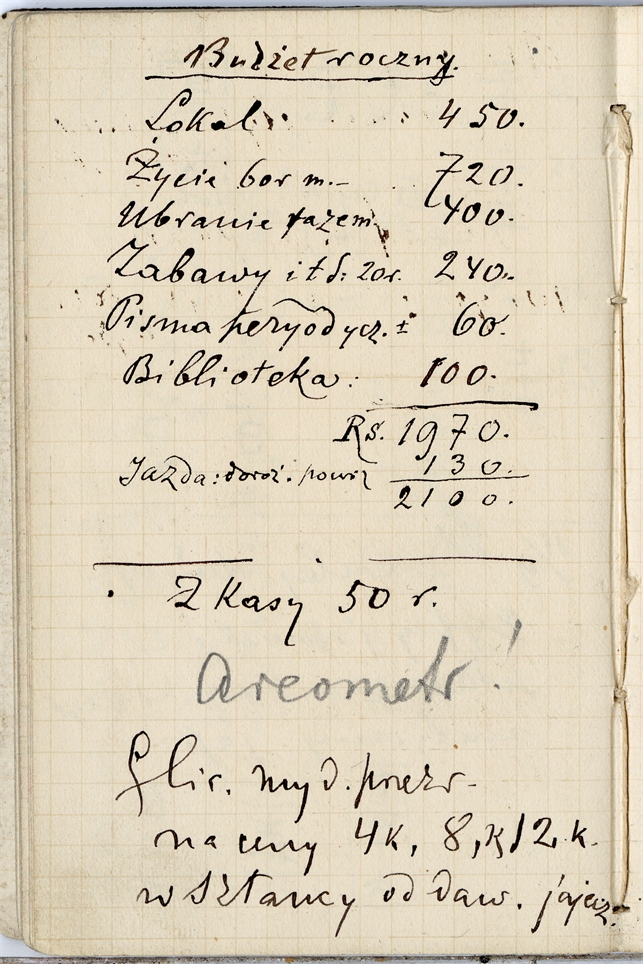 Budżet roczny.
Lokal: 450.
Życie 60r m.- 720.
Ubranie razem 400.
Zabawy i t d: 20r. 240.
Pisma peryodycz. ± 60.
Biblioteka: 100.
Rs. 1970.
Jazda: doroż. powóz 130.
2100.
Z Kasy 50 r.
Areometr!
Glic. myd. przezr-
na ceny 4k, 8,k 12.k.
w sztancy od daw. jajecz.